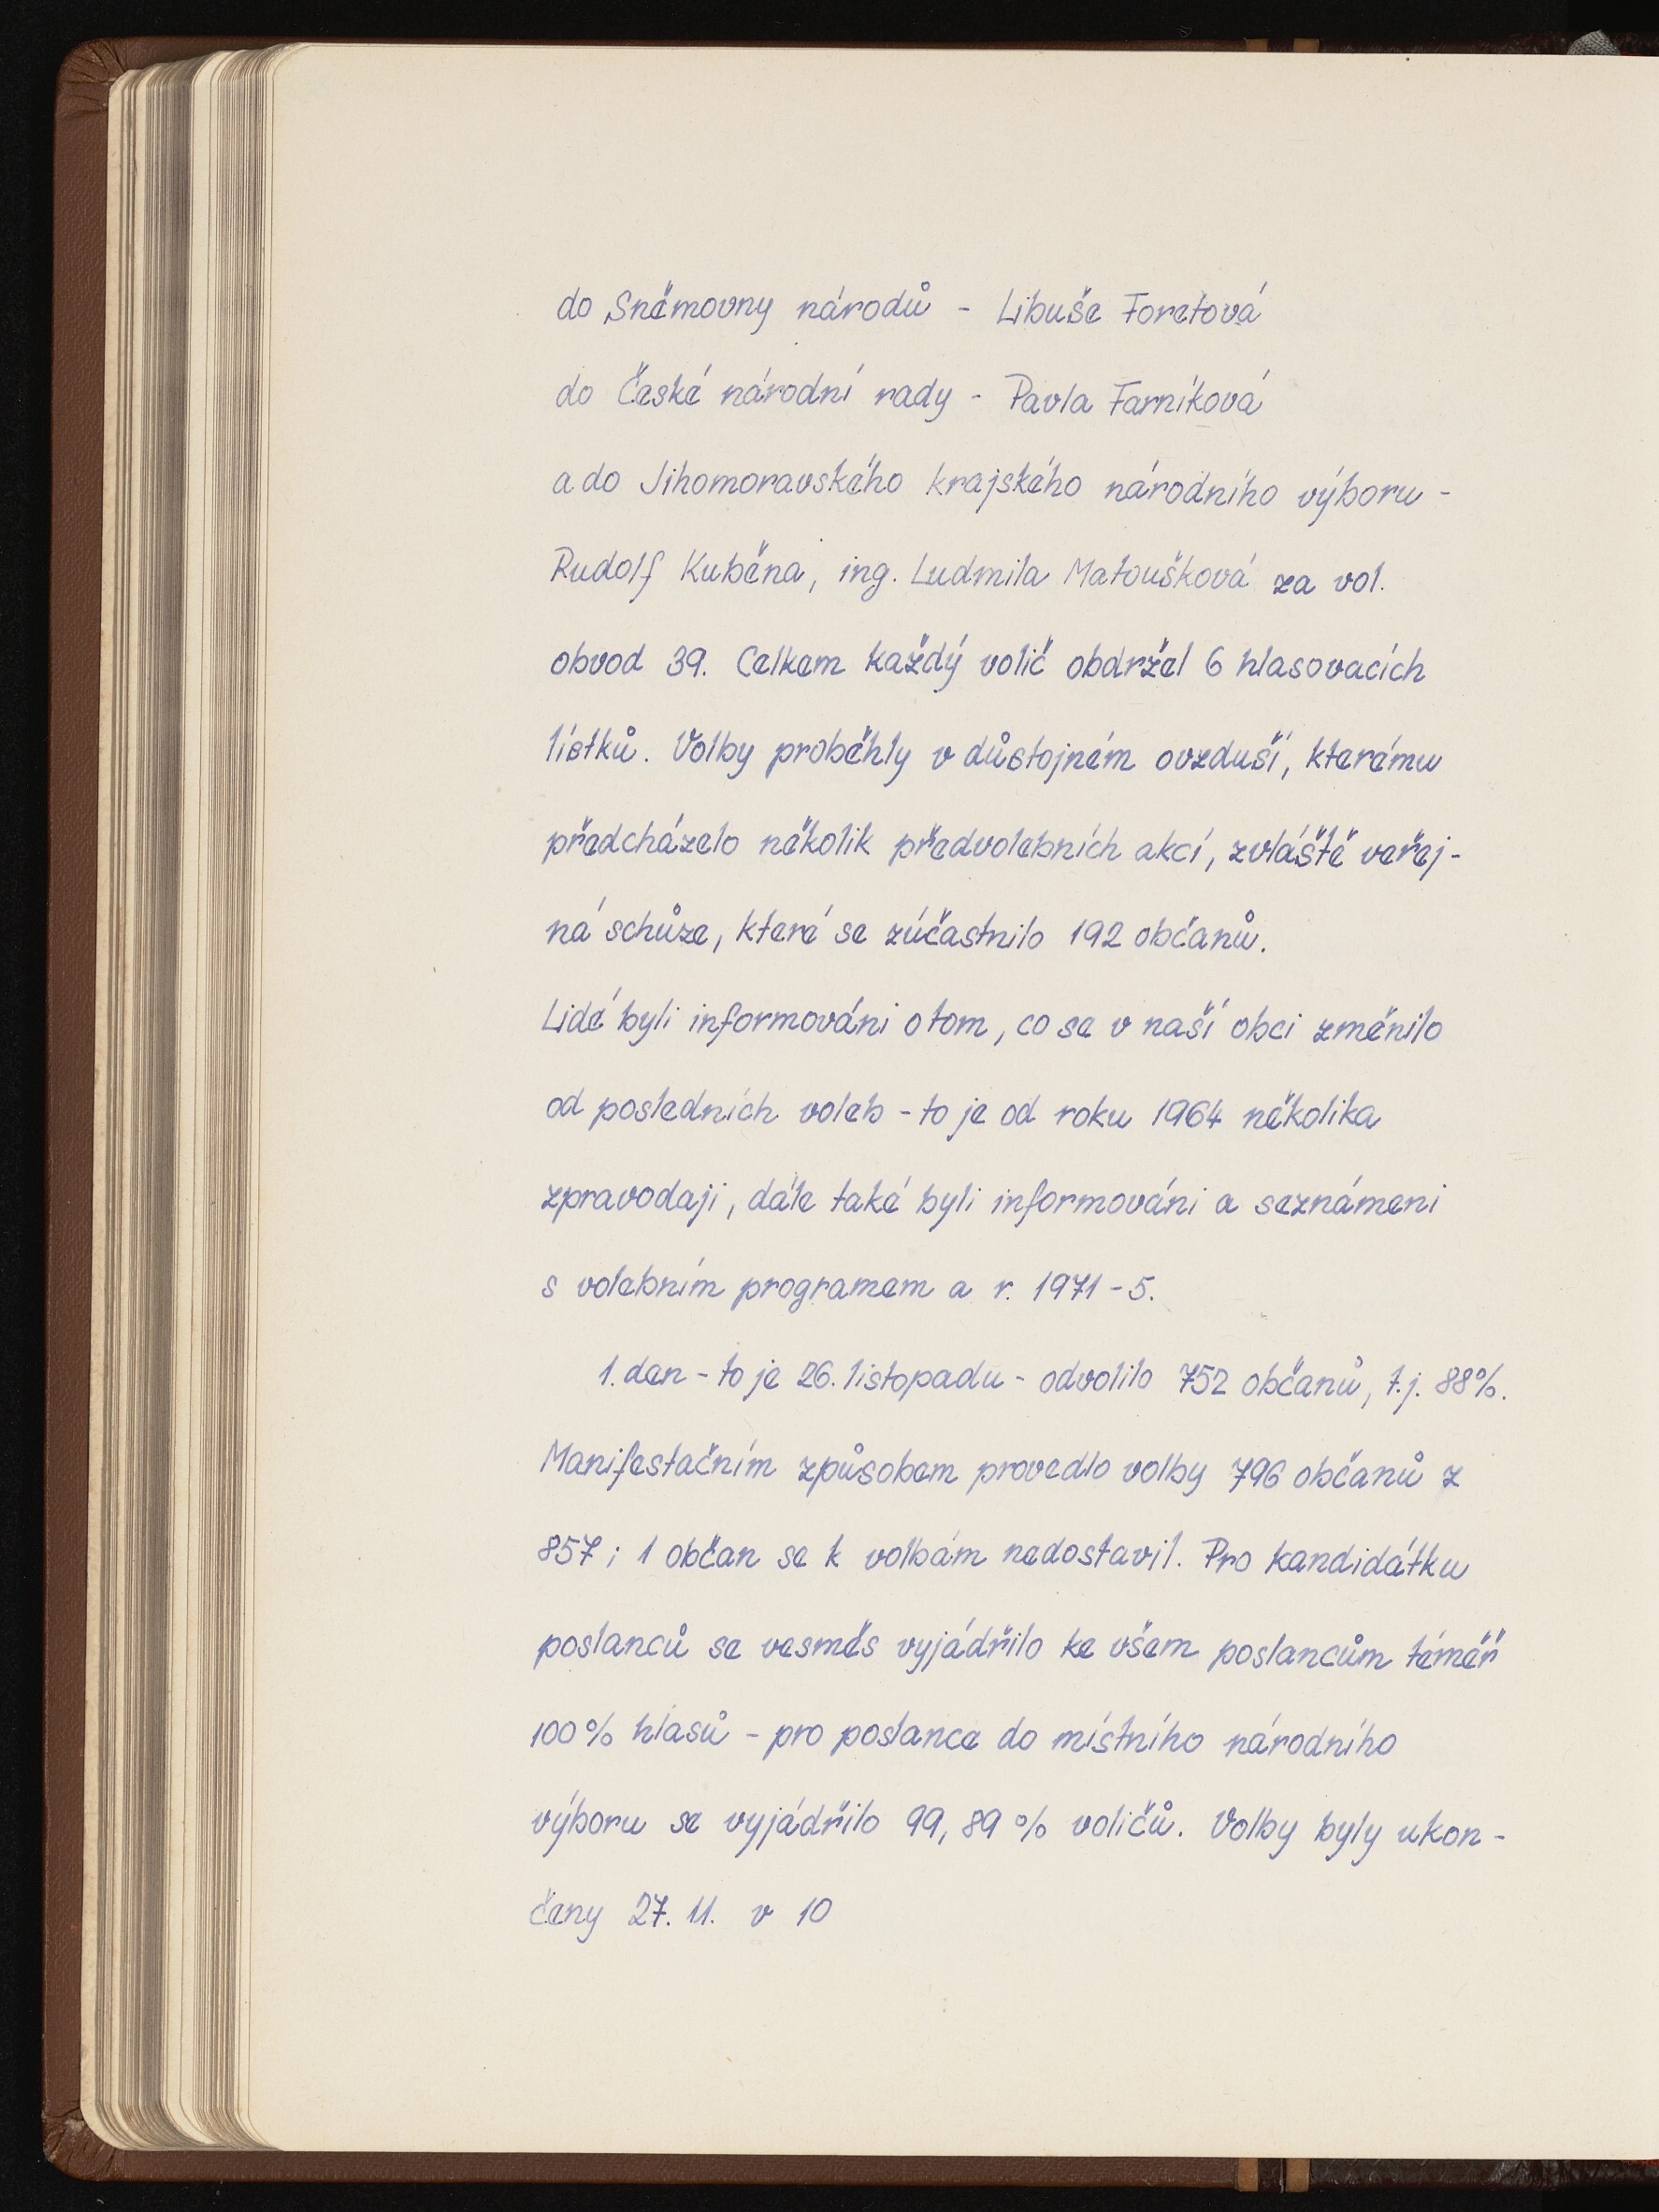 do Sněmovny národů - Libuše Foretová
do České národní rady - Pavla Farníková
a do Jihomoravského krajského národního výboru -
Rudolf Kuběna, ing. Ludmila Matoušková za vol.
obvod 39. Celkem každý volič obdržel 6 hlasovacích
lístků. Volby proběhly v důstojném ovzduší, kterému
předcházelo několik předvolebních akcí, zvláště veřej-
ná schůze, které se zúčastnilo 192 občanů.
Lidé byli informováni o tom, co se v naší obci změnilo
od posledních voleb - to je od roku 1964 několika
zpravodaji, dále také byli informováni a seznámeni
s volebním programem a r. 1971 - 5.
1. den - to je 26. listopadu - odvolilo 752 občanů, t.j. 88%.
Manifestačním způsobem provedlo volby 796 občanů z
857; 1 občan se k volbám nedostavil. Pro kandidátku
poslanců se vesměs vyjádřilo ke všem poslancům téměř
100% hlasů - pro poslance do místního národního
výboru se vyjádřilo 99,89% voličů. Volby byly ukon-
čeny 27. 11. v 10